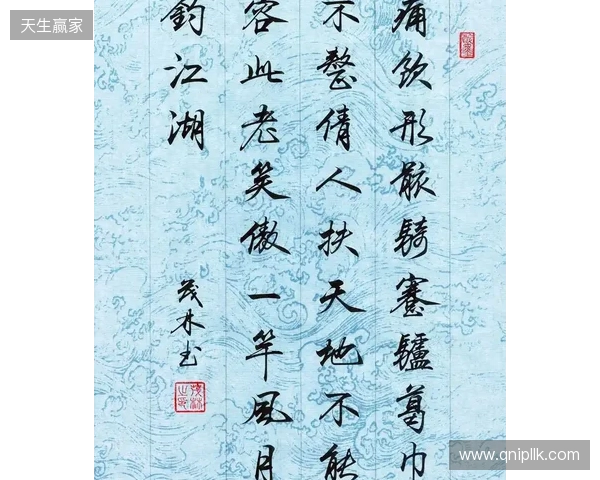 天生赢家
痛饮形骸騎蹇驢葛巾
不整倩人扶天地不能
容此老笑傲一竿風月
釣江湖
茂林书
www.qniplk.com